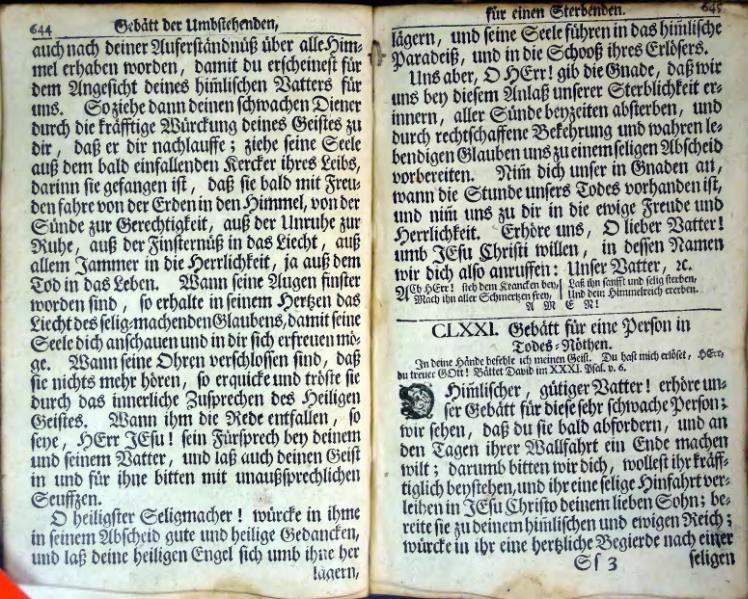 644 Gebätt der Umbstehenden,
auch nach deiner Auferständnüß über alle Him-
mel erhaben worden, damit du erscheinest für
dem Angesicht deines him̃lischen Vatters für
uns. So ziehe dann deinen schwachen Diener
durch die kräfftige Würckung deines Geistes zu
dir, daß er dir nachlauffe; ziehe seine Seele
auß dem bald einfallenden Kercker ihres Leibs,
darinn sie gefangen ist, daß sie bald mit Freu-
den fahre von der Erden in den Himmel, von der
Sünde zur Gerechtigkeit, auß der Unruhe zur
Ruhe, auß der Finsternüß in das Liecht, auß
allem Jammer in die Herrlichkeit, ja auß dem
Tod in das Leben. Wann seine Augen finster
worden sind, so erhalte in seinem Hertzen das
Liecht des selig-machenden Glaubens, damit seine
Seele dich anschauen und in dir sich erfreuen mö-
ge. Wann seine Ohren verschlossen sind, daß
sie nichts mehr hören, so erquicke und tröste sie
durch das innerliche Zusprechen des Heiligen
Geistes. Wann ihm die Rede entfallen, so
seye, HErr JEsu! sein Fürsprech bey deinem
und seinem Vatter, und laß auch deinen Geist
in und für ihne bitten mit unaußsprechlichen
Seuffzen.
O heiligster Seligmacher! würcke in ihme
in seinem Abscheid gute und heilige Gedancken,
und laß deine heiligen Engel sich umb ihne her
lägern,
für einen Sterbenden. 645
lägern, und seine Seele führen in das him̃lische
Paradeiß, und in die Schooß ihres Erlösers.
Uns aber, O HErr! gib die Gnade, daß wir
uns bey diesem Anlaß unserer Sterblichkeit er-
innern, aller Sünde beyzeiten absterben, und
durch rechtschaffene Bekehrung und wahren le-
bendigen Glauben uns zu einem seligen Abscheid
vorbereiten. Nim̃ dich unser in Gnaden an,
wann die Stunde unsers Todes vorhanden ist,
und nim̃ uns zu dir in die ewige Freude und
Herrlichkeit. Erhöre uns, O lieber Vatter!
umb JEsu Christi willen, in dessen Namen
wir dich also anruffen: Unser Vatter, ꝛc.
ACh HErr! steh dem Krancken bey, Laß ihn sanfft und selig sterben,
Mach ihn aller Schmertzen frey, Und dein Himmelreich ererben.
A M E N!
CLXXI. Gebätt für eine Person in
Todes-Nöthen.
In deine Hände befehle ich meinen Geist. Du hast mich erlöset, HErr,
du treuer GOtt! Bättet David im XXXI. Psal. v. 6.
O Him̃lischer, gütiger Vatter! erhöre un-
ser Gebätt für diese sehr schwache Person;
wir sehen, daß du sie bald abfordern, und an
den Tagen ihrer Wallfahrt ein Ende machen
wilt; darumb bitten wir dich, wollest ihr kräff-
tiglich beystehen, und ihr eine selige Hinfahrt ver-
leihen in JEsu Christo deinem lieben Sohn; be-
reite sie zu deinem him̃lischen und ewigen Reich;
würcke in ihr eine hertzliche Begierde nach einer
Ss 3 seligen